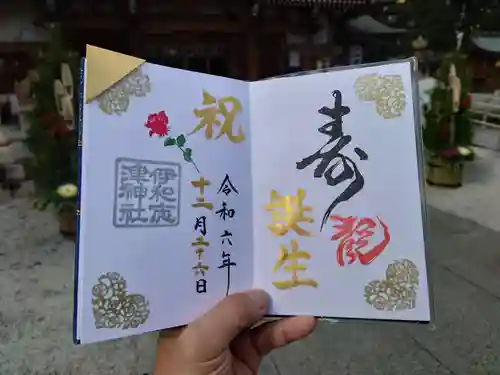 寿
龍
誕生
祝
令和六年
十二月二十六日
伊和志
津神社